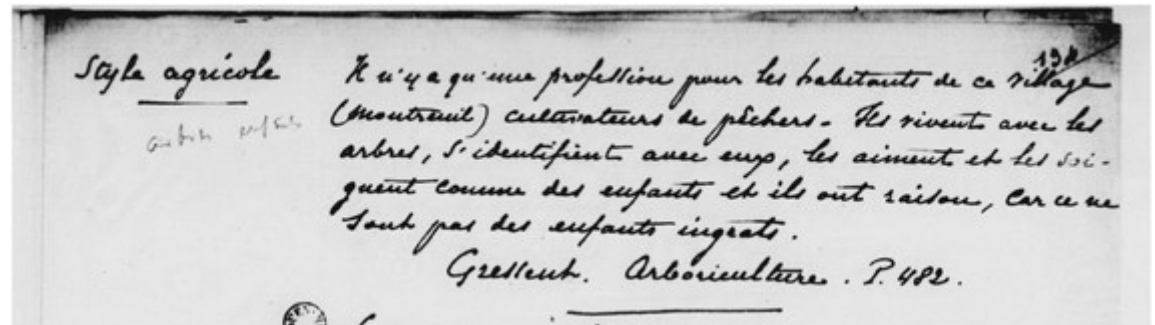 198
Style agricole
Il n'y a qu'une profession pour les habitants de ce village
(Montreuil) cultivateurs de pêchers. Ils vivent avec les
arbres, s'identifient avec eux, les aiment et les soi-
gnent comme des enfants et ils ont raison, car ce ne
sont pas des enfants ingrats.
Gressent. Arboriculture. P. 482.